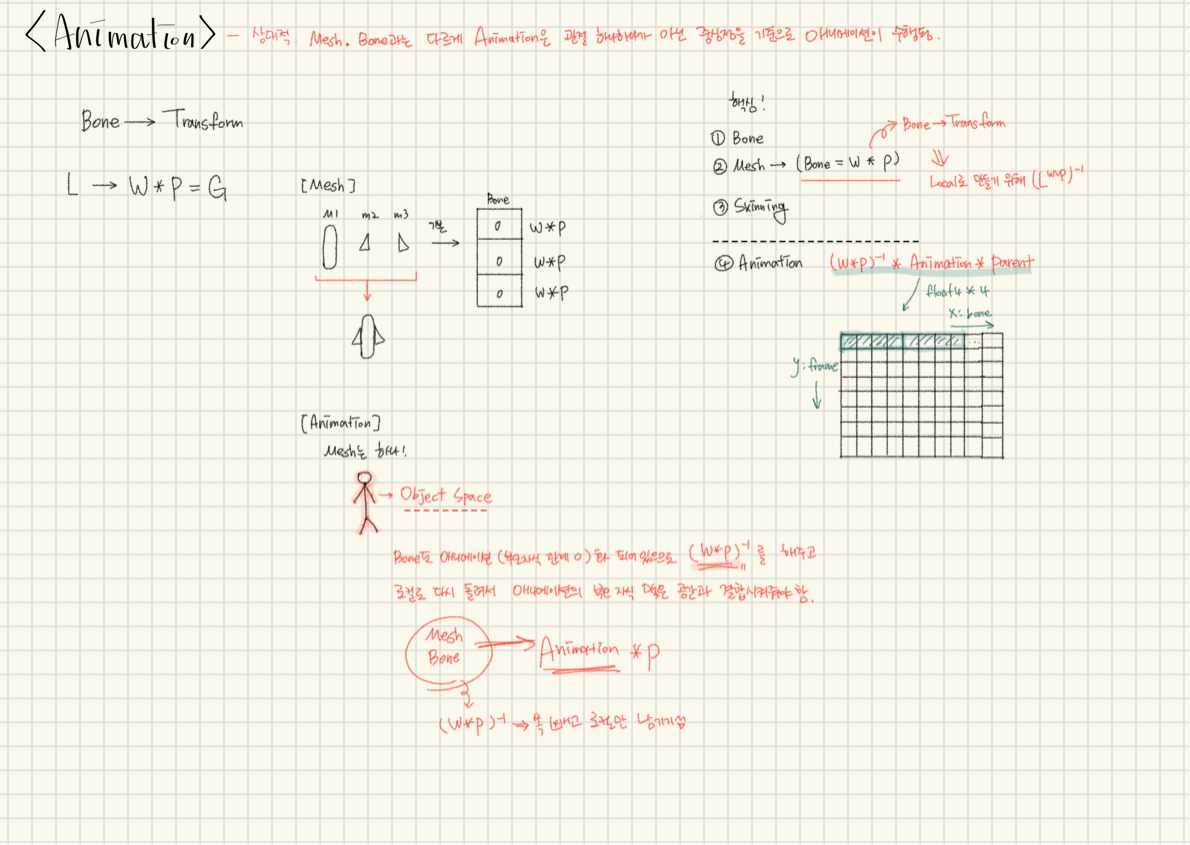 <Animation> - 상대적. Mesh. Bone과는 다르게 Animation은 관절 하나하나가 아닌 중심점을 기준으로 애니메이션이 수행됨.
Bone → Transform
L → W * P = G
[Mesh]
M1 m2 m3
기본
Bone
0 W*P
0 W*P
0 W*P
핵심!
① Bone
② Mesh → (Bone = W * P)
Bone → Transform
Local로 만들기 위해 (L^(W*P))⁻¹
③ Skinning
④ Animation (W*P)⁻¹ * Animation * Parent
float4 * 4
x: bone
y: frame
[Animation]
Mesh는 하나!
→ Object Space
Bone도 애니메이션 (부모자식 관계 O)화 되어있으므로 (W*P)⁻¹를 해주고
로컬로 다시 돌려서 애니메이션의 부모 자식 공간과 결합시켜줘야 함.
Mesh
Bone
Animation * P
(W*P)⁻¹ → 쏙 빼고 로컬만 남기기